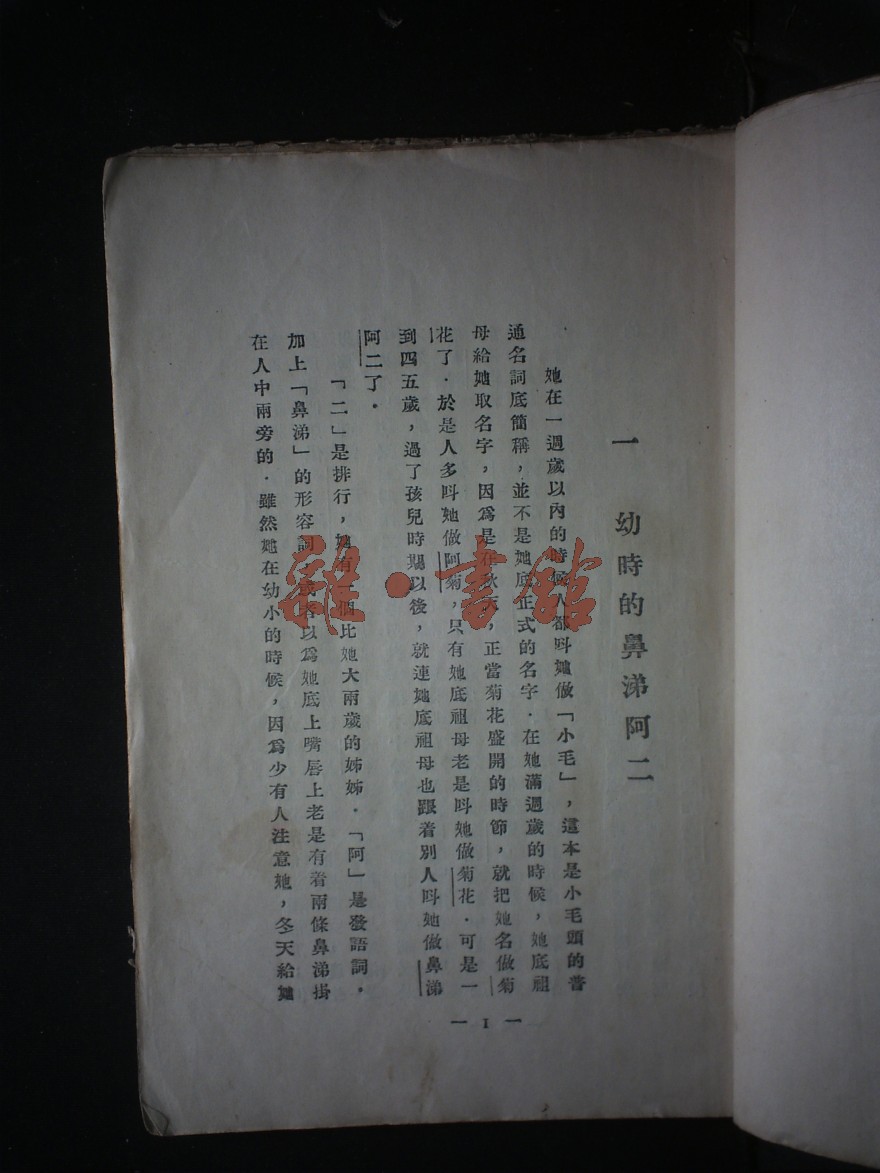 一 幼時的鼻涕阿二
她在一週歲以內的時候人都呌她做「小毛」，這本是小毛頭的普
通名詞底簡稱，並不是她底正式的名字．在她滿週歲的時候，她底祖
母給她取名字，因爲是在秋天，正當菊花盛開的時節，就把她名做菊
花了．於是人多呌她做阿菊，只有她底祖母老是呌她做菊花．可是一
到四五歲，過了孩兒時期以後，就連她底祖母也跟着別人呌她做鼻涕
阿二了．
「二」是排行，她有一個比她大兩歲的姊姊．「阿」是發語詞．
加上「鼻涕」的形容詞，或容以爲她底上嘴唇上老是有着兩條鼻涕掛
在人中兩旁的．雖然她在幼小的時候，因爲少有人注意她，冬天給她
— 1 —
雜·書館